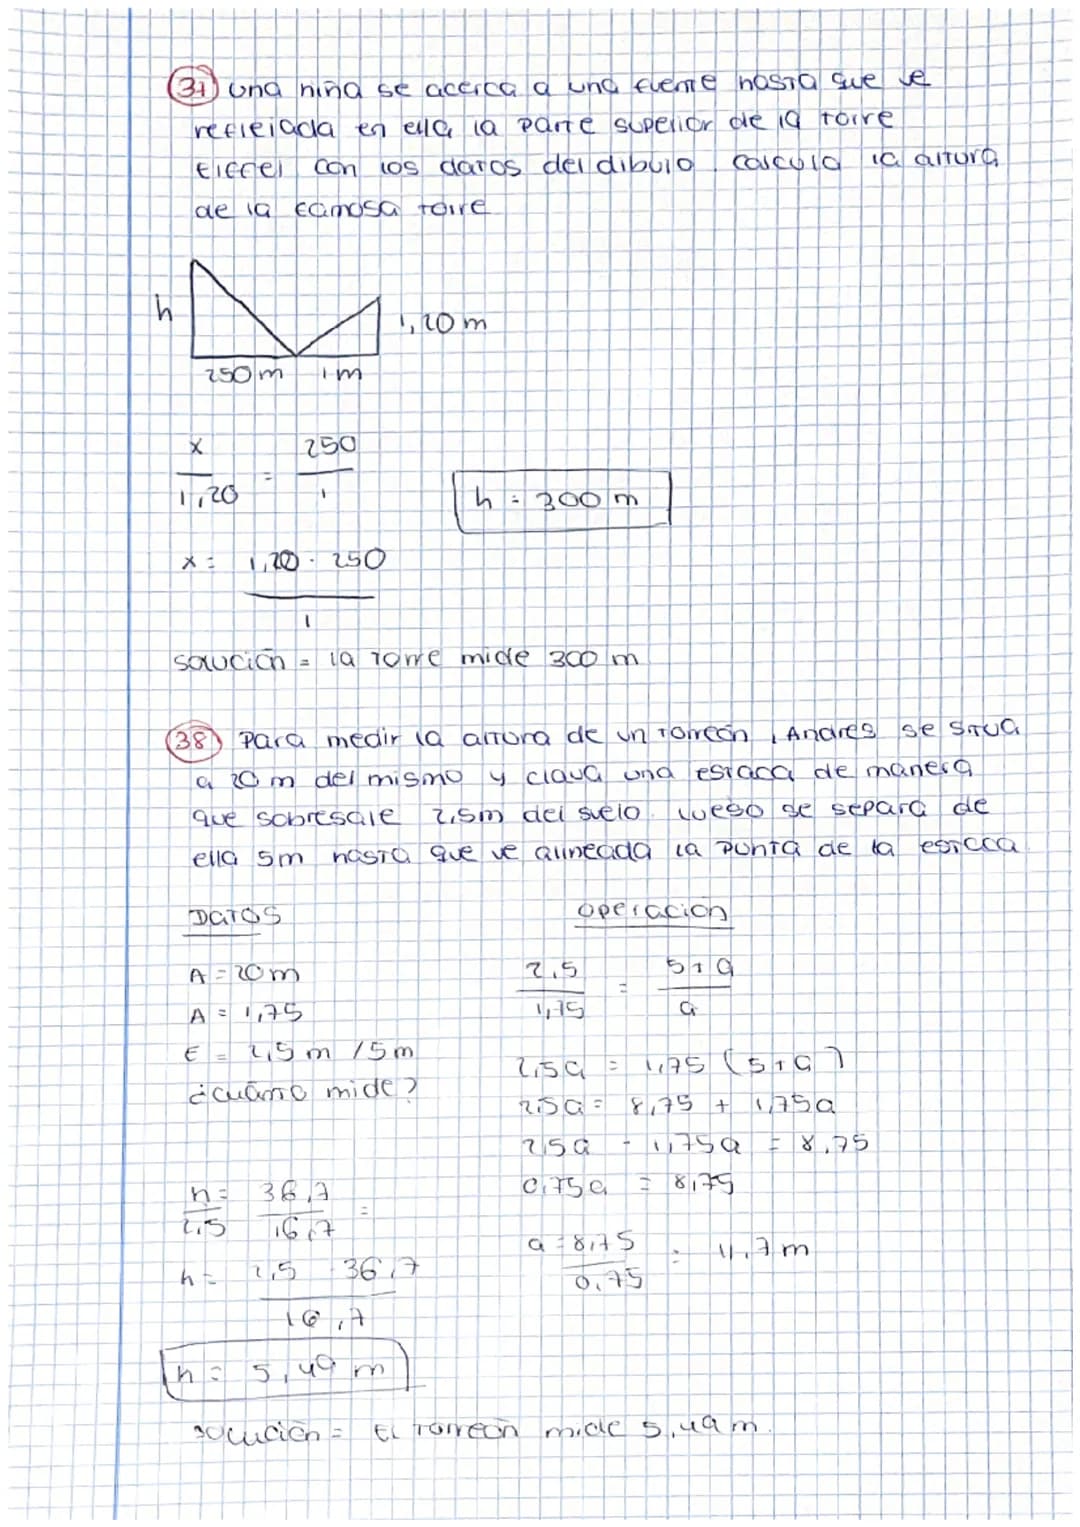 37 una niña se acerca a una fuente hasta que ve
reflejada en ella la parte superior de la torre
Eiffel con los datos del dibujo. calcula la altura
de la famosa torre
h
1,20 m
250 m 1 m
x/1,20 = 250/1
h = 300 m
x = 1,20 · 250 / 1
solución = la torre mide 300 m
38 Para medir la altura de un torreón, Andres se situa
a 20 m del mismo y clava una estaca de manera
que sobresale 2,5m del suelo. luego se separa de
ella 5m hasta que ve alineada la punta de la estaca
DATOS
A = 20 m
A = 1,75
E = 2,5 m / 5 m
¿cuánto mide?
h/2,5 = 36,7/16,7 =
h = 2,5 · 36,7 / 16,7
h = 5,49 m
operación
2,5/1,75 = 5+a/a
2,5a = 1,75 (5+a)
2,5a = 8,75 + 1,75a
2,5a - 1,75a = 8,75
0,75a = 8,75
a = 8,75/0,75 = 11,7 m
solución = El torreón mide 5,49 m.